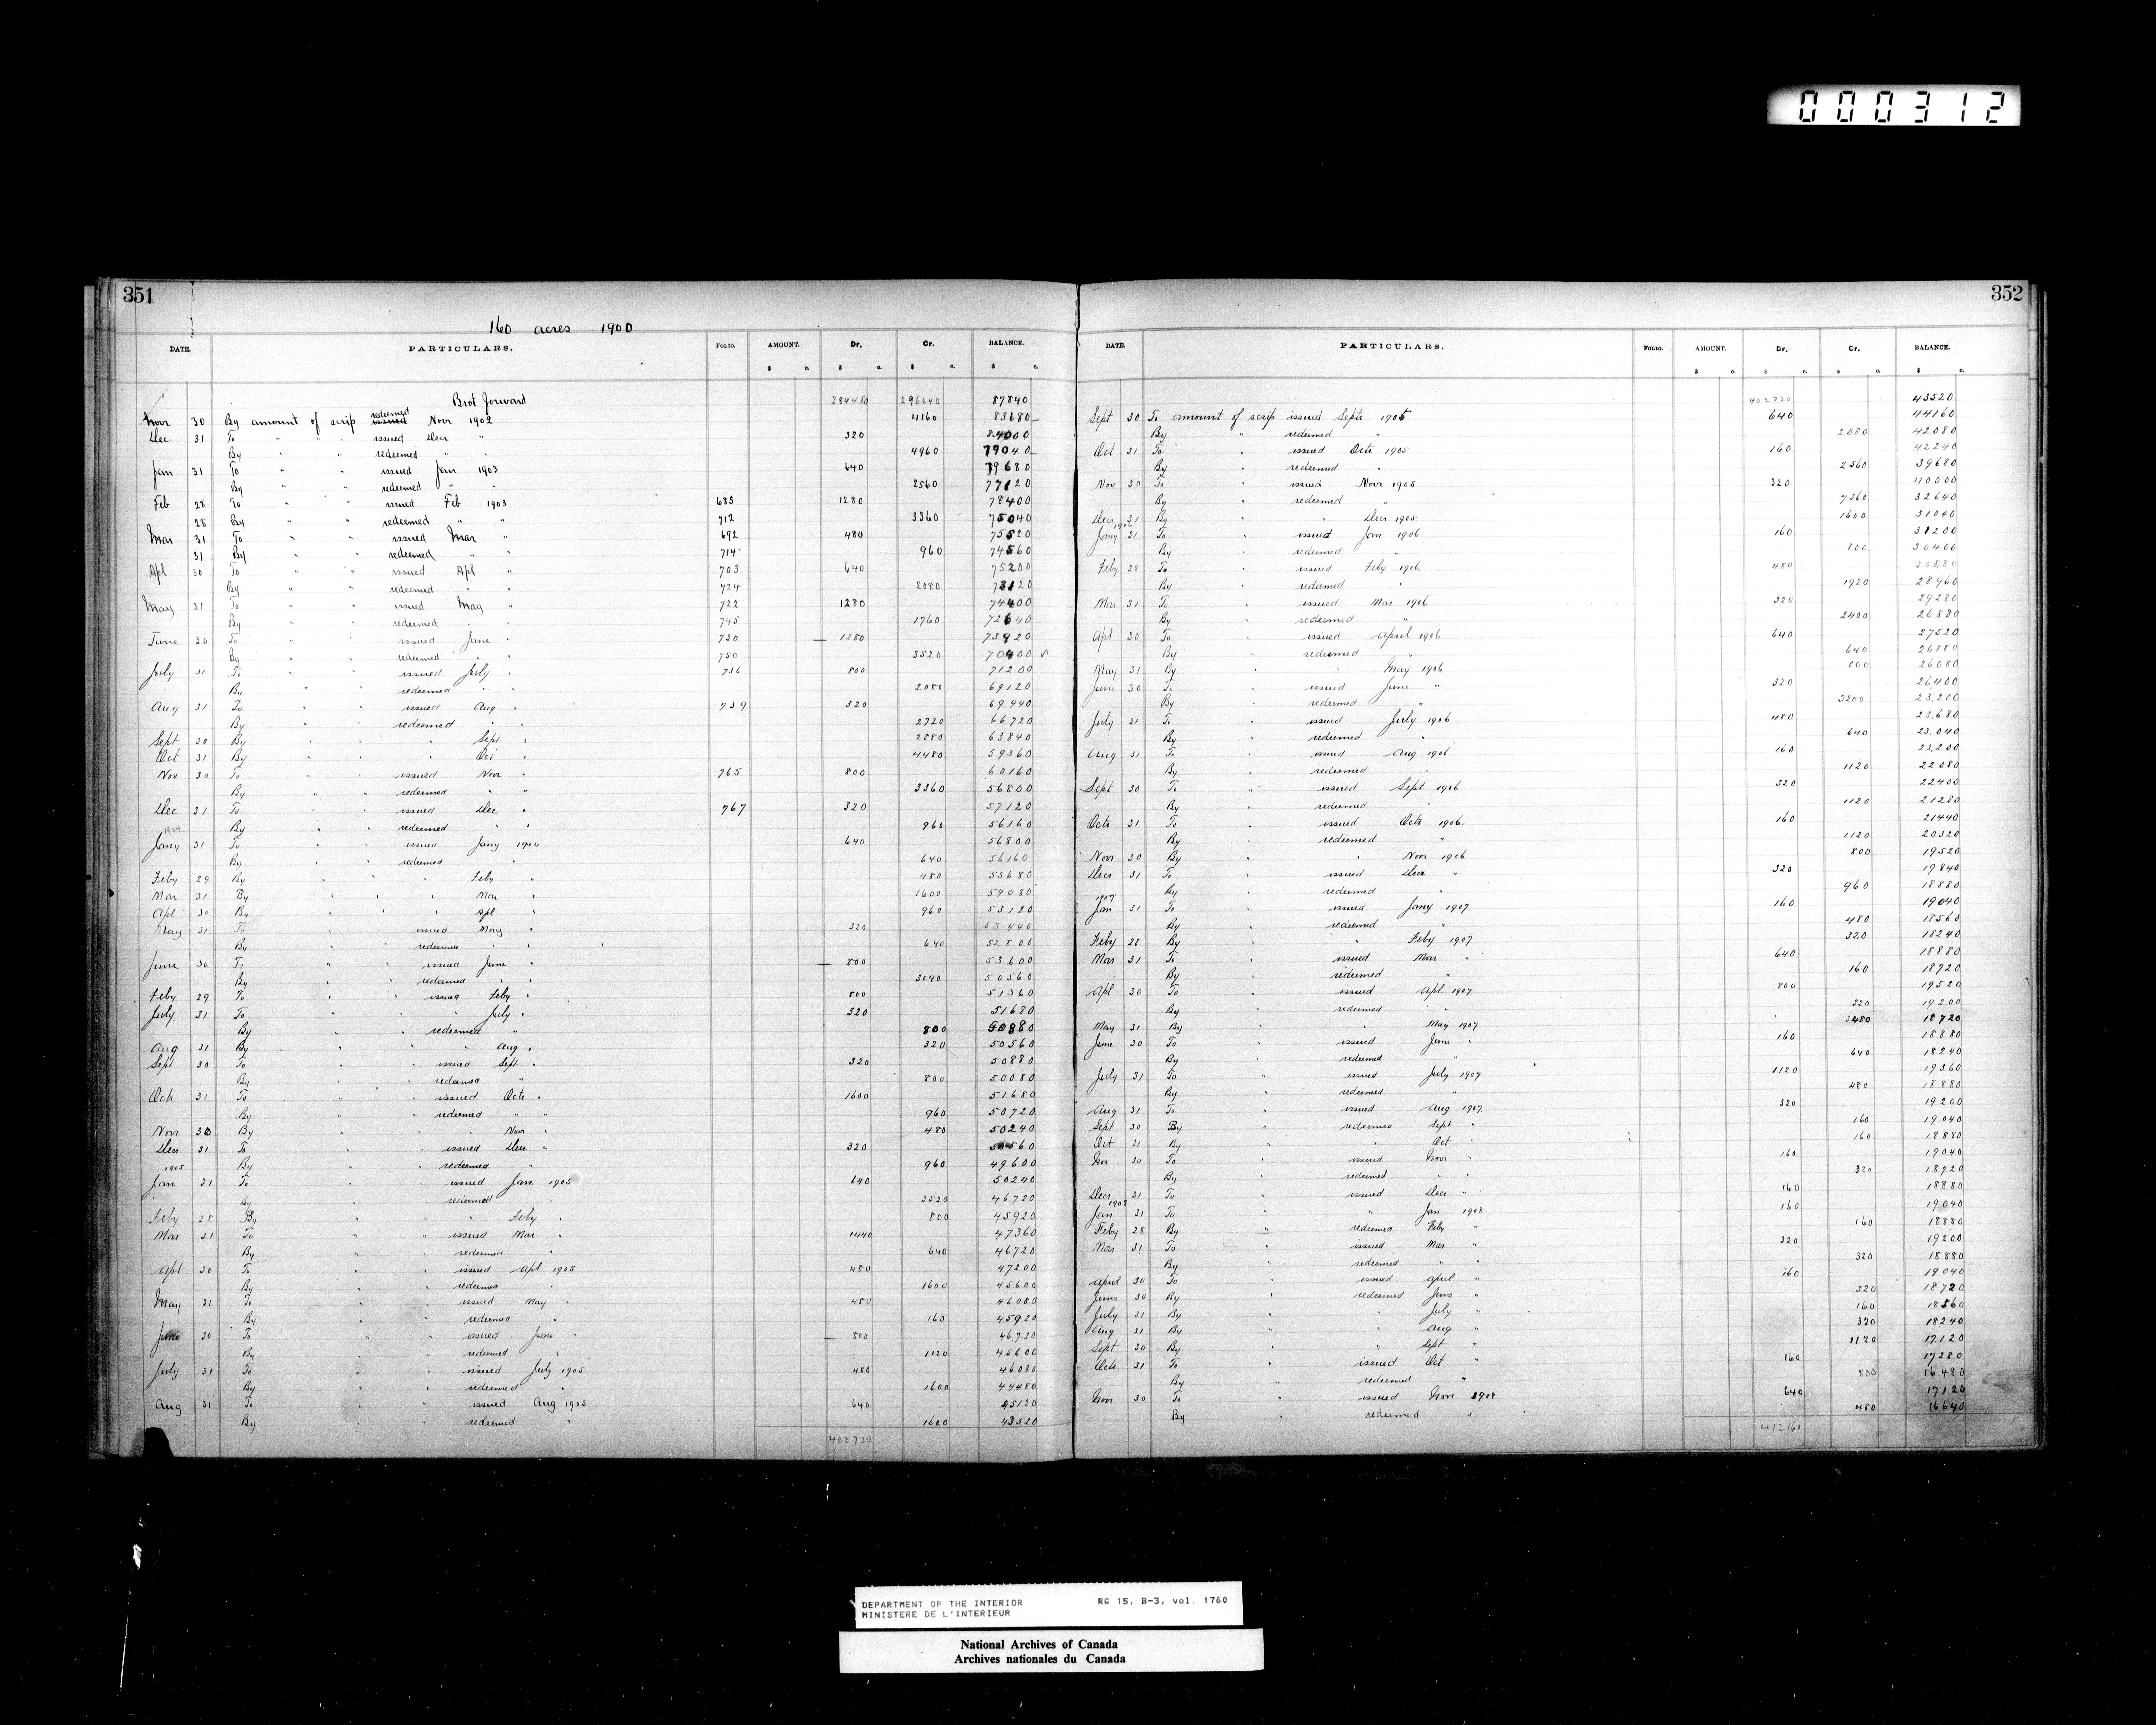 000312
351
160 acres 1900
DATE. PARTICULARS. FOLIO. AMOUNT. Dr. Cr. BALANCE.
$ c. $ c. $ c. $ c.
Brot forward 384480 296640 87840
Novr 30 By amount of scrip issued redeemed Novr 1902 4160 83680
Dec. 31 To " " " issued Decr " 320 84000
By " " redeemed " " 4960 79040
Jan 31 To " " issued Jan 1903 640 79680
By " " redeemed " " 2560 77120
Feb 28 To " " issued Feb 1903 685 1280 78400
28 By " " redeemed " " 712 3360 75040
Mar 31 To " " issued Mar " 692 480 75520
31 By " " redeemed " " 714 960 74560
Apl 30 To " " issued Apl " 703 640 75200
By " " redeemed " " 724 2080 73120
May 31 To " " issued May " 722 1280 74400
By " " redeemed " " 745 1760 72640
June 30 To " " issued June " 730 1280 73920
By " " redeemed " " 750 3520 70400 ✓
July 31 To " " issued July " 736 800 71200
By " " redeemed " " 2080 69120
Aug 31 To " " issued Aug " 739 320 69440
By " " redeemed " " 2720 66720
Sept 30 By " " " Sept " 2880 63840
Oct 31 By " " " Oct " 4480 59360
Nov 30 To " " issued Novr " 765 800 60160
By " " redeemed " " 3360 56800
Dec 31 To " " issued Dec " 767 320 57120
1904 By " " redeemed " " 960 56160
Jany 31 To " " issued Jany 1904 640 56800
By " " redeemed " 640 56160
Feby 29 By " " " Feby " 480 55680
Mar 31 By " " " Mar " 1600 54080
Apl 30 By " " " Apl " 960 53120
May 31 To " issued May " 320 53440
By " redeemed " " 640 52800
June 30 To " " issued June " 800 53600
By " " redeemed " " 3040 50560
Feby 29 To " " issued Feby " 800 51360
July 31 To " " " July " 320 51680
By " " redeemed " 800 50880
Aug 31 By " " " Aug " 320 50560
Sept 30 To " " issued Sept " 320 50880
By " " redeemed " 800 50080
Octr 31 To " " issued Octr " 1600 51680
By " " redeemed " " 960 50720
Novr 30 By " " " Novr " 480 50240
Decr 31 To " " issued Decr " 320 50560
1905 By " " redeemed " 960 49600
Jan 31 To " " issued Jan 1905 640 50240
By " " redeemed " 3520 46720
Feby 28 By " " " Feby " 800 45920
Mar 31 To " " issued Mar " 1440 47360
By " " redeemed " 640 46720
Apl 30 To " " issued Apl 1905 480 47200
By " " redeemed " 1600 45600
May 31 To " " issued May " 480 46080
By " " redeemed " 160 45920
June 30 To " " issued June " 800 46720
By " " redeemed " 1120 45600
July 31 To " " issued July 1905 480 46080
By " " redeemed " 1600 44480
Aug 31 To " " issued Aug 1905 640 45120
By " " redeemed " 1600 43520
402720
352
DATE. PARTICULARS. FOLIO. AMOUNT. Dr. Cr. BALANCE.
$ c. $ c. $ c. $ c.
402720 43520
Sept 30 To amount of scrip issued Septr 1905 640 44160
By " redeemed " 2080 42080
Oct 31 To " issued Octr 1905 160 42240
By " redeemed " 2560 39680
Nov 30 To " issued Novr 1905 320 40000
By " redeemed " 7360 32640
Decr 31 By " " Decr 1905 1600 31040
Jany 31 To " issued Jan 1906 160 31200
By " redeemed " 800 30400
Feby 28 To " issued Feby 1906 480 30880
By " redeemed " 1920 28960
Mar 31 To " issued Mar 1906 320 29280
By " redeemed " 2400 26880
Apl 30 To " issued April 1906 640 27520
By " redeemed " 640 26880
May 31 By " " May 1906 800 26080
June 30 To " issued June " 320 26,400
By " redeemed " 3200 23,200
July 31 To " issued July 1906 480 23,680
By " redeemed " 640 23,040
Aug 31 To " issued Aug 1906 160 23,200
By " redeemed " 1120 22080
Sept 30 To " issued Sept 1906 320 22400
By " redeemed " 1120 21280
Octr 31 To " issued Octr 1906 160 21440
By " redeemed " 1120 20320
Novr 30 By " " Novr 1906 800 19520
Decr 31 To " issued Decr " 320 19840
By " redeemed " 960 18880
1907
Jan 31 To " issued Jany 1907 160 19040
By " redeemed " 480 18560
Feby 28 By " " Feby 1907 320 18240
Mar 31 To " issued Mar " 640 18880
By " redeemed " 160 18720
Apl 30 To " issued Apl. 1907 800 19520
By " redeemed " 320 19200
May 31 By " " May 1907 480 18720
June 30 To " issued June " 160 18880
By " redeemed " 640 18240
July 31 To " issued July 1907 1120 19360
By " redeemed " 480 18880
Aug 31 To " issued Aug 1907 320 19200
Sept 30 By " redeemed Sept " 160 19040
Oct 31 By " " Oct " 160 18880
Nov 30 To " issued Novr " 160 19040
By " redeemed " " 320 18720
Decr 31 To " issued Decr " 160 18880
1908
Jan 31 To " " Jan 1908 160 19040
Feby 28 By " redeemed Feby " 160 18880
Mar 31 To " issued Mar " 320 19200
By " redeemed " " 320 18880
April 30 To " issued April " 160 19040
June 30 By " redeemed June " 320 18720
July 31 By " " July " 160 18560
Aug 31 By " " Aug " 320 18240
Sept 30 By " " Sept " 1120 17120
Octr 31 To " issued Oct " 160 17280
By " redeemed " 800 16480
Novr 30 To issued Novr 1908 640 17120
By redeemed " 480 16640
412160
DEPARTMENT OF THE INTERIOR RG 15, B-3, vol. 1760
MINISTERE DE L'INTERIEUR
National Archives of Canada
Archives nationales du Canada